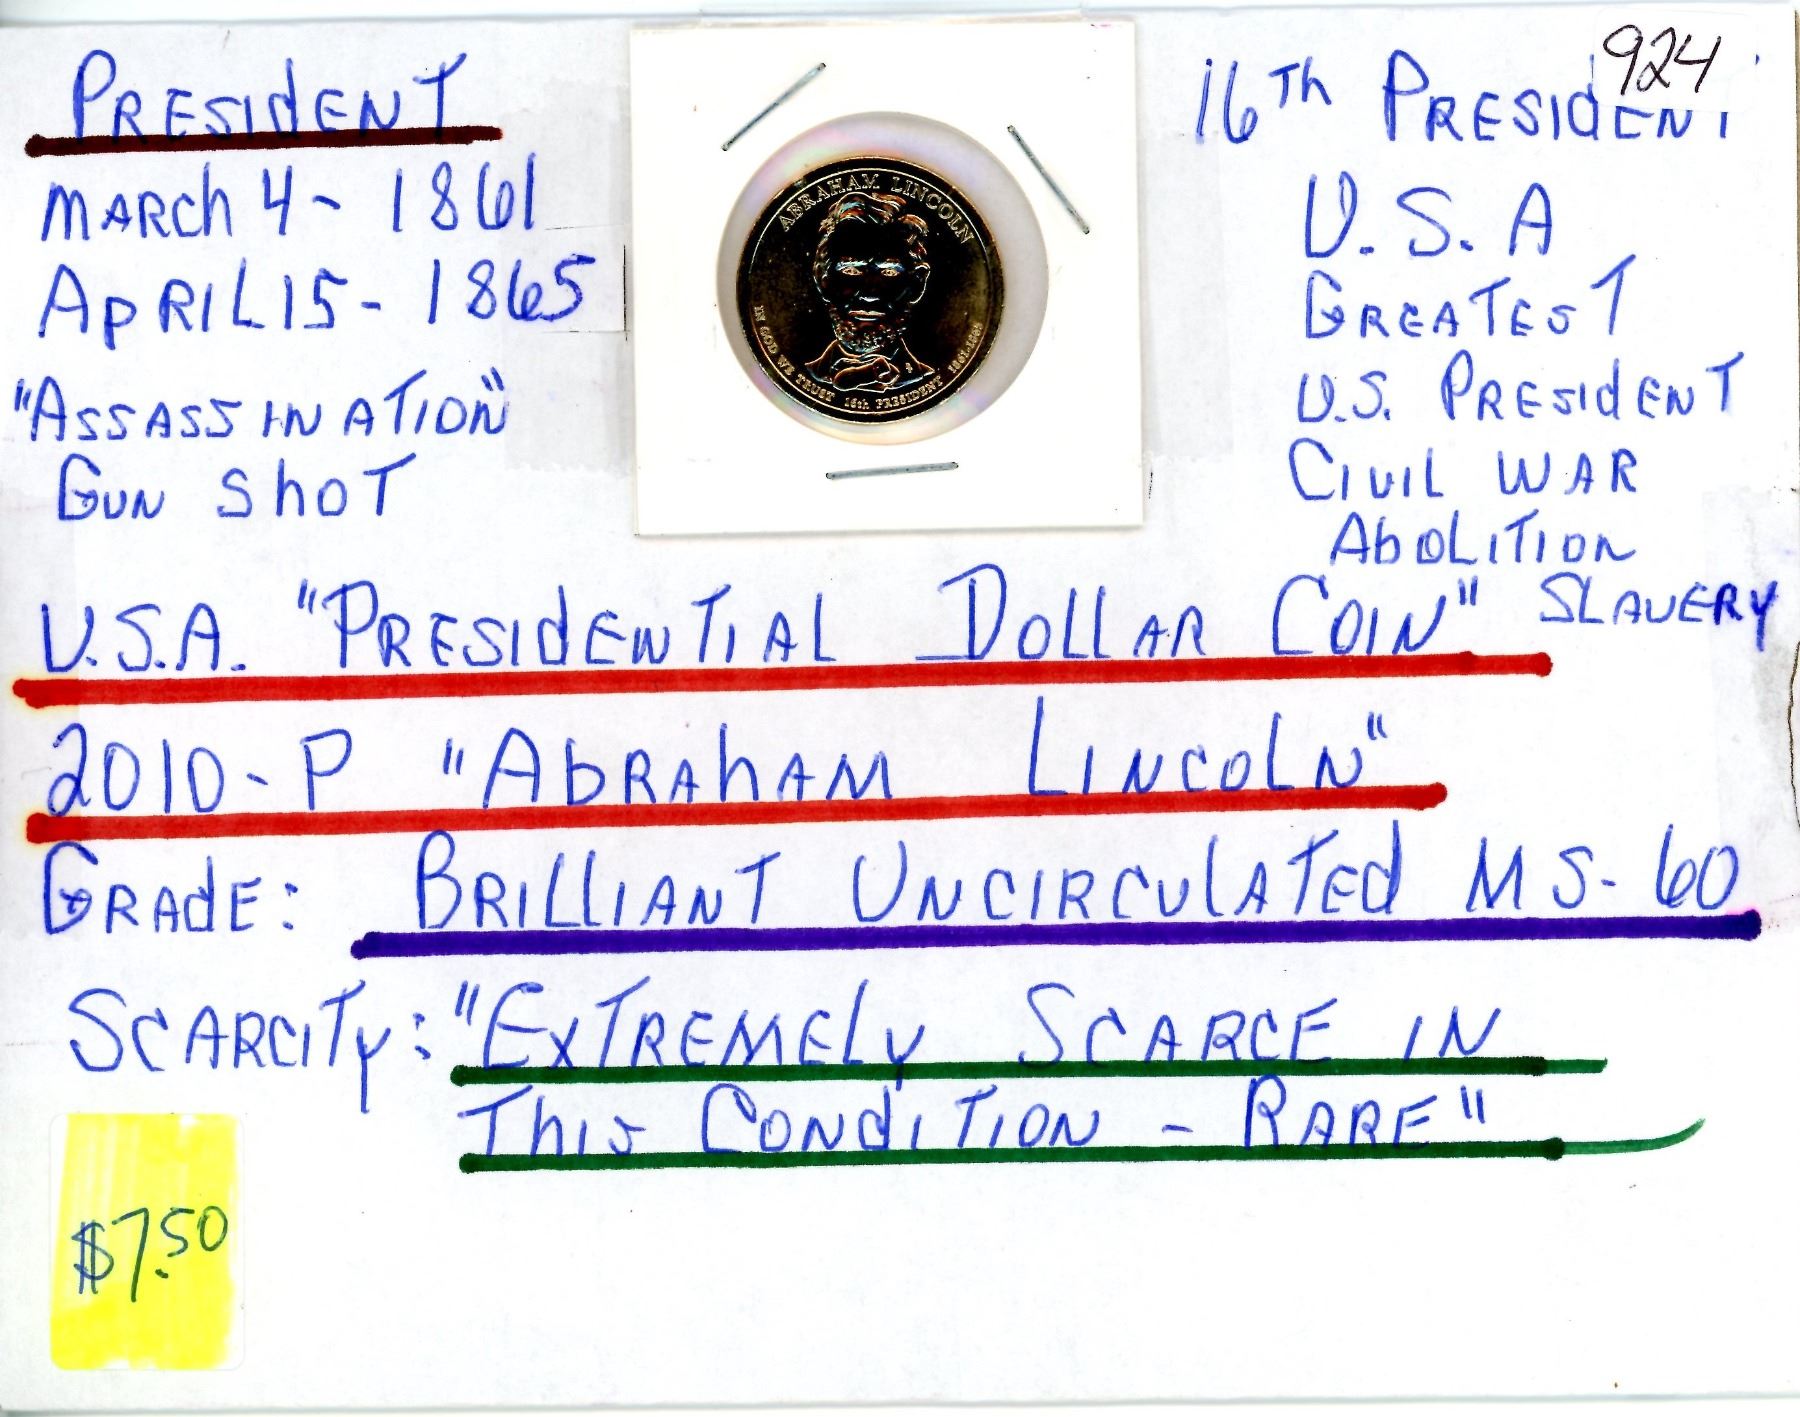 924
PRESIDENT
MARCH 4 - 1861
APRIL 15 - 1865
"ASSASSINATION"
GUN SHOT
ABRAHAM LINCOLN
IN GOD WE TRUST 16th PRESIDENT 1861-1865
16TH PRESIDENT
U.S.A
GREATEST
U.S. PRESIDENT
CIVIL WAR
ABOLITION
SLAVERY
U.S.A. "PRESIDENTIAL DOLLAR COIN"
2010-P "ABRAHAM LINCOLN"
GRADE: BRILLIANT UNCIRCULATED MS-60
SCARCITY: "EXTREMELY SCARCE IN
THIS CONDITION - RARE"
$7.50